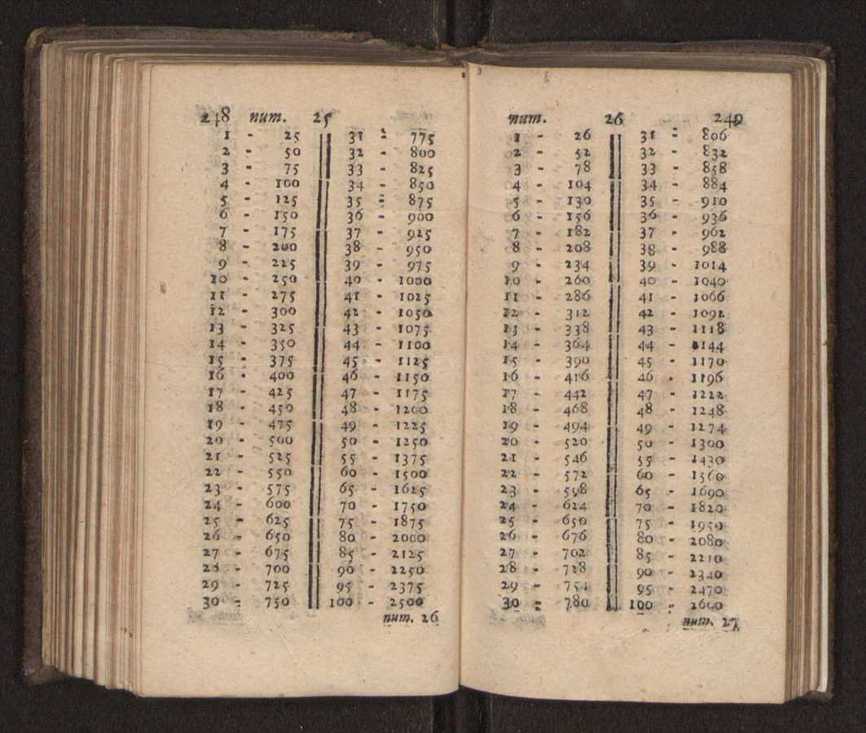 248 num. 25
1 - 25 31 - 775
2 - 50 32 - 800
3 - 75 33 - 825
4 - 100 34 - 850
5 - 125 35 - 875
6 - 150 36 - 900
7 - 175 37 - 925
8 - 200 38 - 950
9 - 225 39 - 975
10 - 250 40 - 1000
11 - 275 41 - 1025
12 - 300 42 - 1050
13 - 325 43 - 1075
14 - 350 44 - 1100
15 - 375 45 - 1125
16 - 400 46 - 1150
17 - 425 47 - 1175
18 - 450 48 - 1200
19 - 475 49 - 1225
20 - 500 50 - 1250
21 - 525 55 - 1375
22 - 550 60 - 1500
23 - 575 65 - 1625
24 - 600 70 - 1750
25 - 625 75 - 1875
26 - 650 80 - 2000
27 - 675 85 - 2125
28 - 700 90 - 2250
29 - 725 95 - 2375
30 - 750 100 - 2500
num. 26
num. 26 249
1 - 26 31 - 806
2 - 52 32 - 832
3 - 78 33 - 858
4 - 104 34 - 884
5 - 130 35 - 910
6 - 156 36 - 936
7 - 182 37 - 962
8 - 208 38 - 988
9 - 234 39 - 1014
10 - 260 40 - 1040
11 - 286 41 - 1066
12 - 312 42 - 1092
13 - 338 43 - 1118
14 - 364 44 - 1144
15 - 390 45 - 1170
16 - 416 46 - 1196
17 - 442 47 - 1222
18 - 468 48 - 1248
19 - 494 49 - 1274
20 - 520 50 - 1300
21 - 546 55 - 1430
22 - 572 60 - 1560
23 - 598 65 - 1690
24 - 624 70 - 1820
25 - 650 75 - 1950
26 - 676 80 - 2080
27 - 702 85 - 2210
28 - 728 90 - 2340
29 - 754 95 - 2470
30 - 780 100 - 2600
num. 27